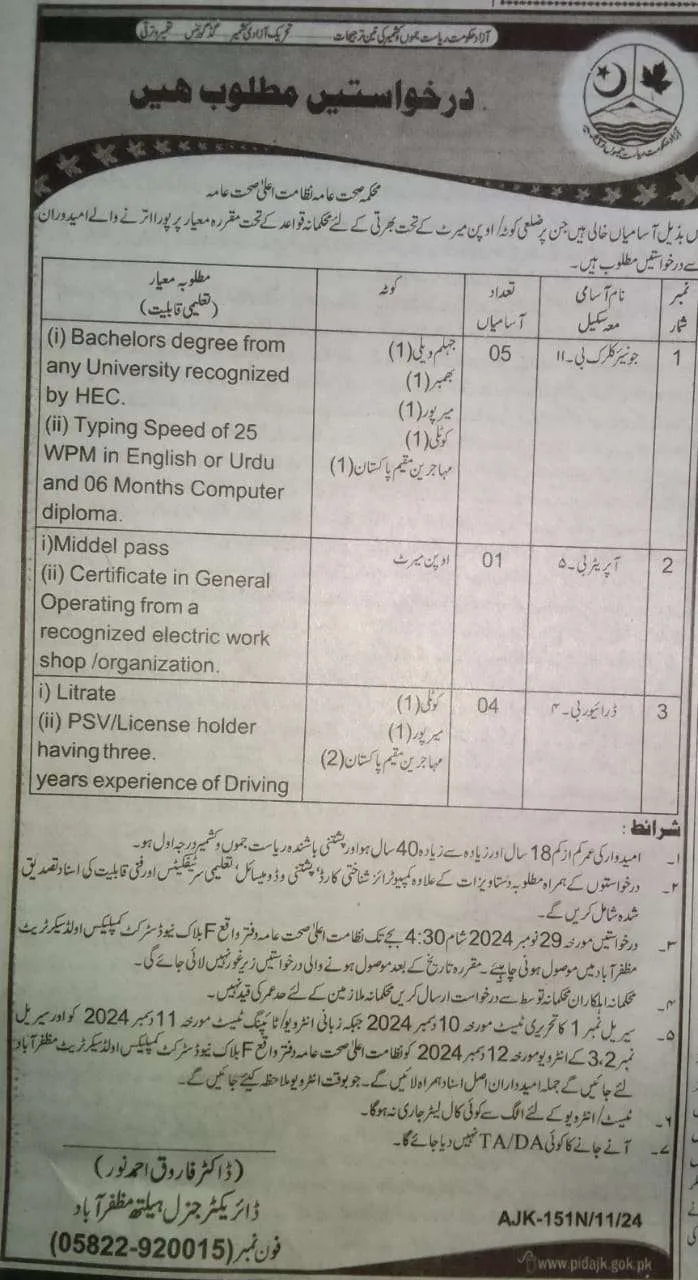 آزاد حکومت ریاست جموں و کشمیر کی تین ترجیحات تحریک آزادی کشمیر گڈ گورننس تعمیر و ترقی
درخواستیں مطلوب ھیں
محکمہ صحت عامہ نظامت اعلیٰ صحت عامہ
بذیل آسامیاں خالی ہیں جن پر ضلعی کوٹہ/ اوپن میرٹ کے تحت بھرتی کے لئے محکمانہ قواعد کے تحت مقررہ معیار پر پورا اترنے والے امیدوران
سے درخواستیں مطلوب ہیں۔
نمبر شمار
نام آسامی معہ سکیل
تعداد آسامیاں
کوٹہ
مطلوبہ معیار
(تعلیمی قابلیت)
1
جونیئر کلرک بی۔۱۱
05
جہلم ویلی (1)
بھمبر (1)
میرپور (1)
کوٹلی (1)
مہاجرین مقیم پاکستان (1)
(i) Bachelors degree from
any University recognized
by HEC.
(ii) Typing Speed of 25
WPM in English or Urdu
and 06 Months Computer
diploma.
2
آپریٹر بی۔۵
01
اوپن میرٹ
i)Middel pass
(ii) Certificate in General
Operating from a
recognized electric work
shop /organization.
3
ڈرائیور بی۔۴
04
کوٹلی (1)
میرپور (1)
مہاجرین مقیم پاکستان (2)
i) Litrate
(ii) PSV/License holder
having three.
years experience of Driving
شرائط :
۱۔ امیدوار کی عمر کم از کم 18 سال اور زیادہ سے زیادہ 40 سال ہو اور پشتنی باشندہ ریاست جموں و کشمیر درجہ اول ہو۔
۲۔ درخواستوں کے ہمراہ مطلوبہ دستاویزات کے علاوہ کمپیوٹرائز شناختی کارڈ' پشتنی و ڈومیسائل' تعلیمی سرٹیفکیٹس اور فنی قابلیت کی اسناد تصدیق
شدہ شامل کریں گے۔
۳۔ درخواستیں مورخہ 29 نومبر 2024 شام 4:30 بجے تک نظامت اعلیٰ صحت عامہ دفتر واقع F بلاک نیو ڈسٹرکٹ کمپلیکس اولڈ سیکرٹریٹ
مظفرآباد میں موصول ہونی چاہیئے۔ مقررہ تاریخ کے بعد موصول ہونے والی درخواستیں زیر غور نہیں لائی جائے گی۔
۴۔ محکمانہ اہلکاران محکمانہ توسط سے درخواست ارسال کریں محکمانہ ملازمین کے لئے حد عمر کی قید نہیں۔
۵۔ سیریل نمبر 1 کا تحریری ٹیسٹ مورخہ 10 دسمبر 2024 جبکہ زبانی انٹرویو/ ٹائپنگ ٹیسٹ مورخہ 11 دسمبر 2024 کو اور سیریل
نمبر 3,2 کے انٹرویو مورخہ 12 دسمبر 2024 کو نظامت اعلیٰ صحت عامہ دفتر واقع F بلاک نیو ڈسٹرکٹ کمپلیکس اولڈ سیکرٹریٹ مظفرآباد
لئے جائیں گے جملہ امیدواران اصل اسناد ہمراہ لائیں گے۔ جو بوقت انٹرویو ملاحظہ کیئے جائیں گے۔
۶۔ ٹیسٹ/ انٹرویو کے لئے الگ سے کوئی کال لیٹر جاری نہ ہوگا۔
۷۔ آنے جانے کا کوئی TA/DA نہیں دیا جائے گا۔
(ڈاکٹر فاروق احمد نور)
ڈائریکٹر جنرل ہیلتھ مظفرآباد
فون نمبر (05822-920015)
AJK-151N/11/24
www.pidajk.gok.pk